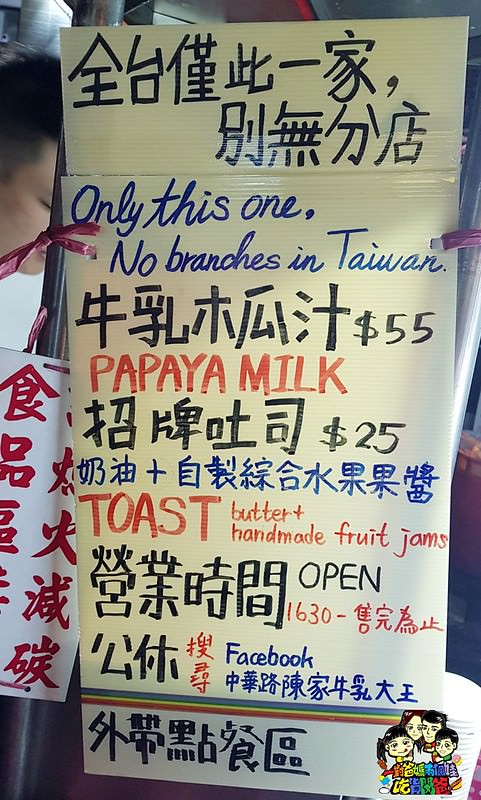 全台僅此一家,
別無分店
Only this one.
No branches in Taiwan.
牛乳木瓜汁 $55
PAPAYA MILK
招牌吐司 $25
奶油+自製綜合水果果醬
TOAST butter+
handmade fruit jams
營業時間 OPEN
1630-售完為止
公休 搜尋 Facebook
中華路陳家牛乳大王
外帶點餐區
食品區
火減碳